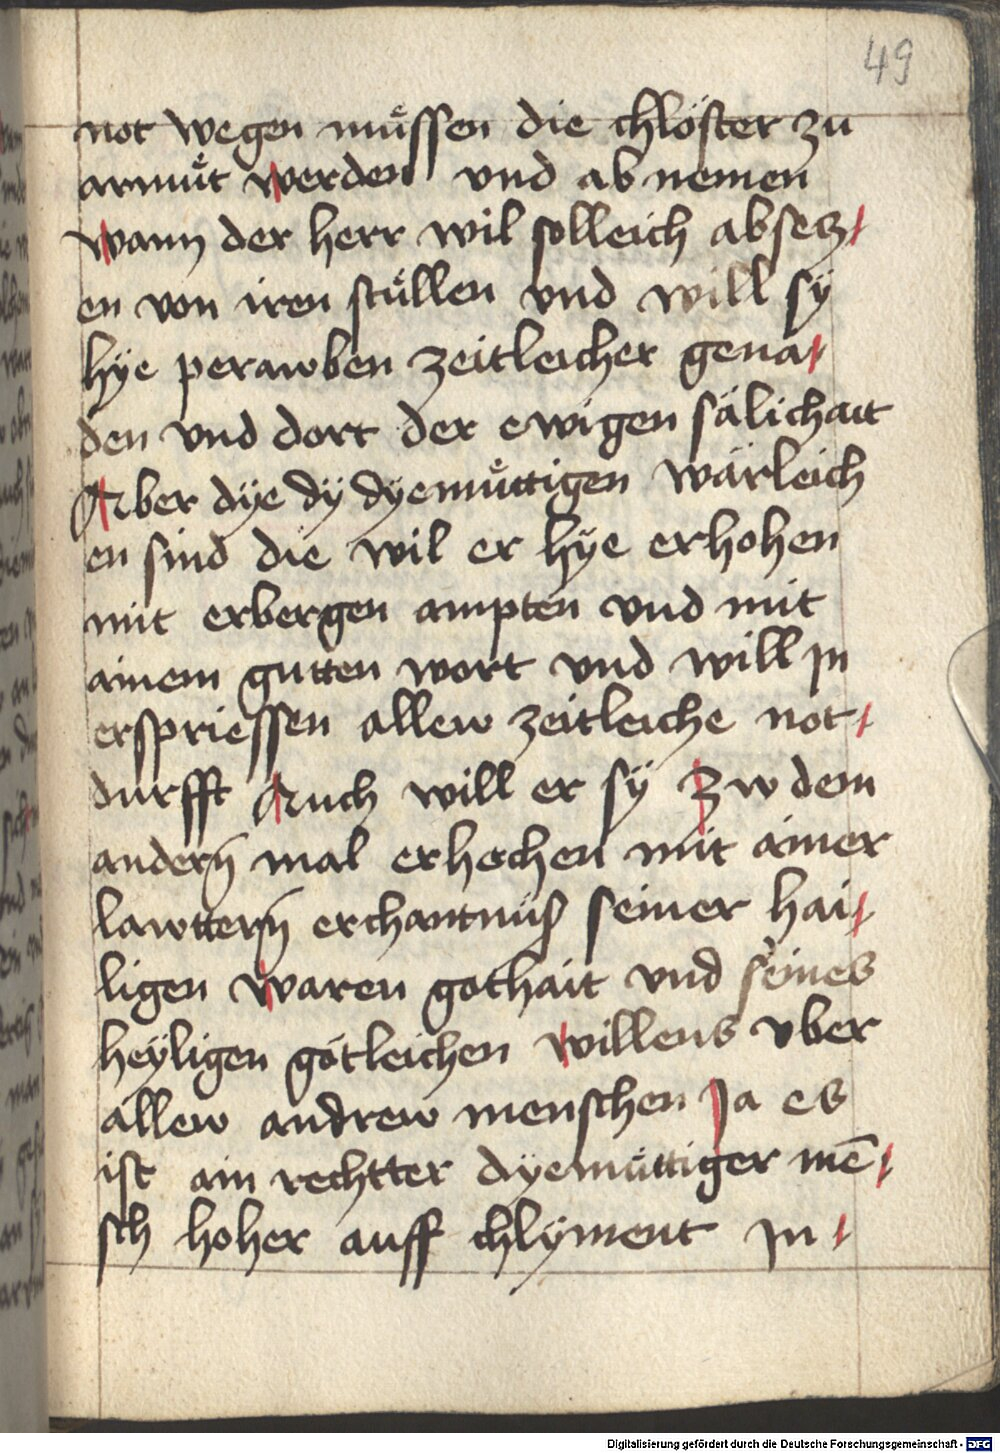 49
not wegen muͤssen die chlöster zu
armuͤt werden vnd ab nemen
wann der herr wil solleich absetz
en von iren stuͤllen vnd will sÿ
hÿe perawben zeitleicher gena
den vnd dort der ewigen sälichait
Aber dÿe dÿ dyemuͤttigen wärleich
en sind die wil er hÿe erhohen
mit erbergen ampten vnd mit
ainem gutten wort vnd will jn
erspriessen allew zeitleiche not
durfft Auch will er sÿ zw dem
andern̄ mal erhechen mit ainer
lawttern̄ erchantnüß seiner hai
ligen waren gothait vnd seines
heÿligen götleichen willens vber
allew andrew menschen Ja es
ist ain rechtter dÿemuͤttiger mē
sch hoher auff chlyment jn
Digitalisierung gefördert durch die Deutsche Forschungsgemeinschaft - DFG